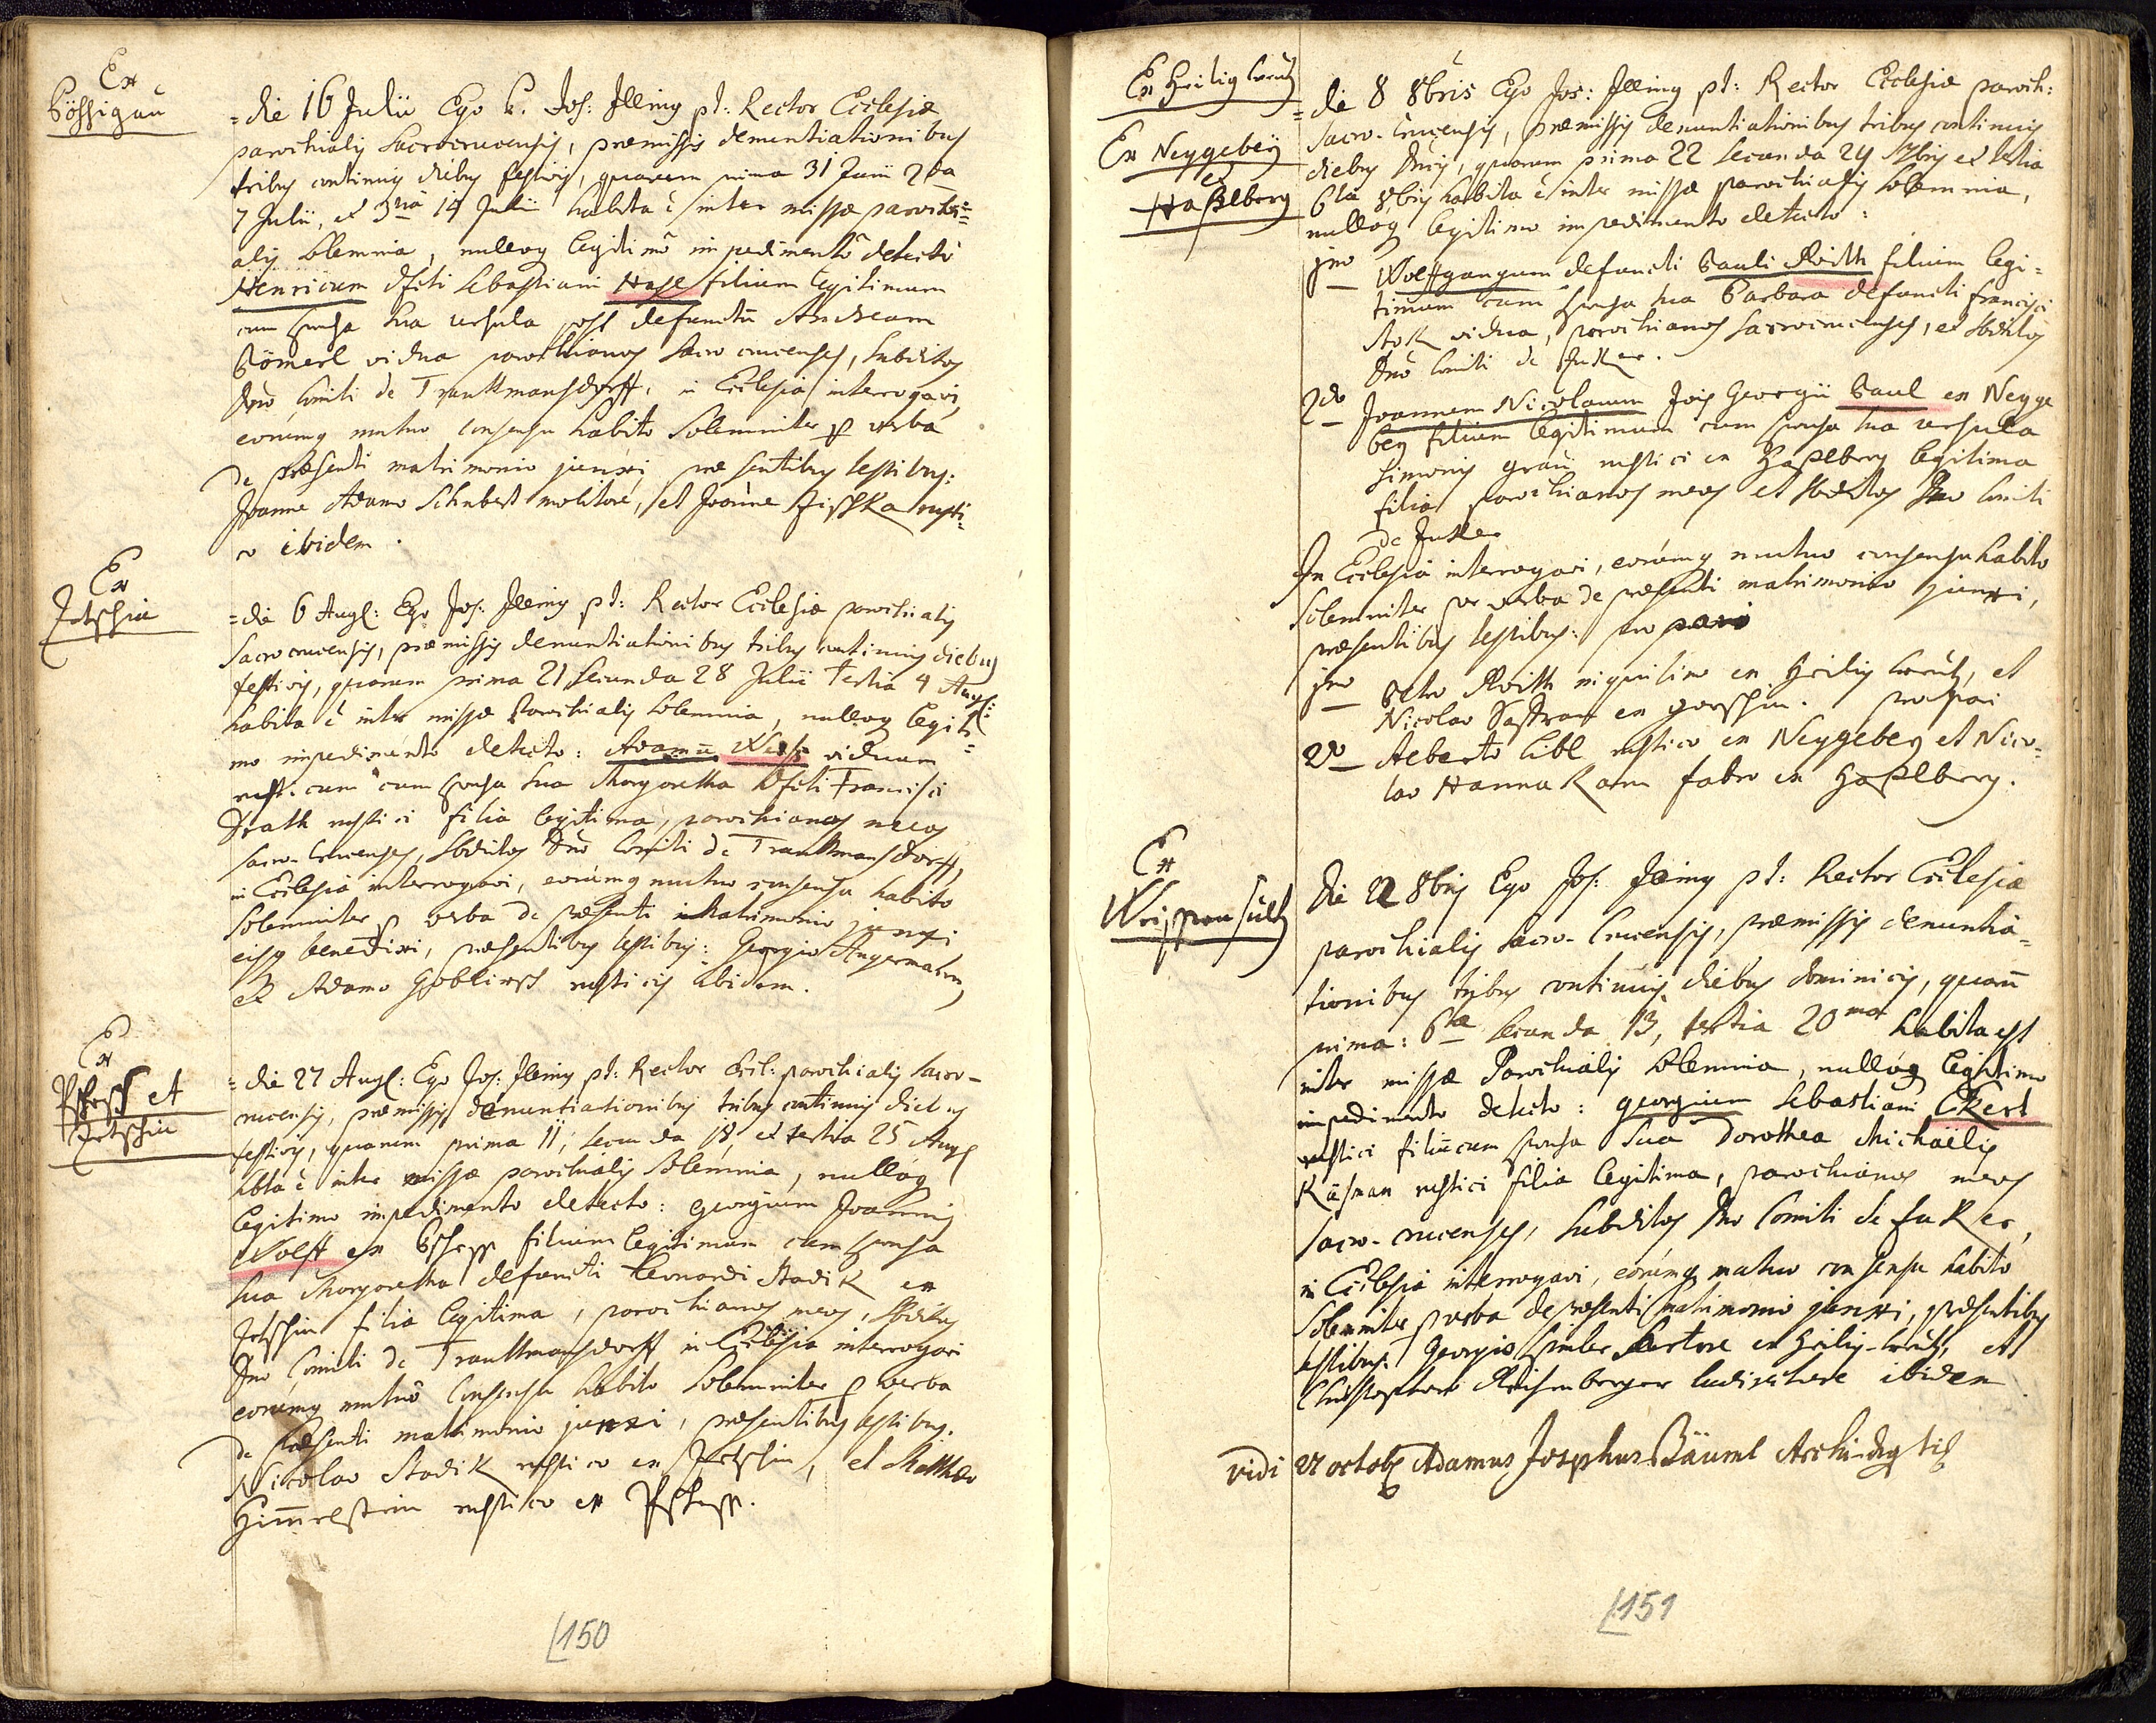 Ex
Pössigau
= die 16 Julii Ego P. Jos: Illing pt: Rector Ecclesiæ
parochialis Sacrocrucensis, præmissis denuntiationibus
tribus continuis diebus festivis, quarum prima 31 Junii 2da
7 Julii, et 3tia 14 Julii habita ē inter missæ parochi=
alis solemnia, nulloq legitimô impedimentô detectô
Henricum dfcti Sebastiani Hasl filium legitimum
cum sponsa sua Ursula post defunctū Andream
Römerl vidua parochianos Sacro crucenses, subditos
Dno Comiti de Trauttmansdorff, in Ecclesia interrogavi,
eorumq mutuo consensu habito Solemniter p verba
de præsenti matrimonio junxi præsentibus testibus:
Joanne Adamo Schubert molitore, et Joanne Zischka rusti=
co ibidem.
Ex
Zetschin
= die 6 Augs: Ego Jos: Illing pt: Rector Ecclesiæ parochialis
Sacro crucensis, præmissis denuntiationibus tribus continuis diebus
festivis, quarum prima 21 secunda 28 Julii tertia 4 Augs:
habita ē inter missæ Parochialis solemnia, nulloq legiti=
mo impedimento detecto: Adamū Weis viduum
rusticum cum sponsa sua Margaretha dfcti Francisci
Drath rustici filia legitima, parochianos meos
sacro-crucenses, sbditos Dnō Comiti de Trauttmansdorff,
in Ecclesia interrogavi, eorumq mutuo consensu habito
Solemniter p verba de præsenti matrimonio junxi
eisq benedixi, præsentibus testibus: Georgio Angermann,
et Adamo Goblirsch rusticis ibidem.
Ex
Pscheß et
Zetschin
= die 27 Augs: Ego Jos: Illing pt: Rector Eccl: parochialis Sacro-
crucensis, præmissis denuntiationibus tribus continuis diebus
festivis, quarum prima 11, secunda 18, et tertia 25 Augs
hbta ē inter missæ parochialis solemnia, nulloq
legitimo impedimento detecto: Georgium Joannis
Wolff ex Pschess filium legitimum cum sponsa
sua Margaretha defuncti Leonardi Stadik ex
Zetschin filia legitima, parochianos meos, sbditos
Dno Comiti de Trauttmansdorff in Ecclesia interrogavi
eorumq mutuô consensu habito solemniter p verba
de præsenti matrimonio junxi, præsentibus testibus.
Nicolao Stadik rustico ex Zetschin, et Matthæo
Him̄elstein rustico ex Pschess.
150
Ex Heilig Creutz
Ex Neygebey
et
Haßlberg
= die 8 8bris Ego Jos: Illing pt: Rector Ecclesiæ paroch:
sacro-Crucensis, præmissis denuntiationibus tribus continuis
diebus Dnicis, quarum prima 22 secunda 29 7bris et tertia
6ta 8bris habita ē inter missæ parochialis solemnia,
nulloq legitimo impedimento detecto:
1mo Wolffgangum defuncti Pauli Roith filium legi=
timum cum sponsa sua Barbara defuncti Francisci
Stok vidua, parochianos Sacrocrucenses, et sbditos
Dno Comiti de Fukker.
2do Joannem Nicolaum Jois Georgii Paul ex Neyge
bey filium legitimum cum sponsa sua Ursula
Simonis Grau rustici ex Haßlberg legitima
filia parochianos meos et sbditos Dno Comiti
de Fukker
In Ecclesia interrogavi, eorumq mutuo consensu habito
Solemniter per verba de præsenti matrimonio junxi,
præsentibus testibus: pro pari
1mo Petro Roith inquilino ex Heilig Creutz, et
Nicolao Pastran ex Gorschin. pro pari
2do Alberto Libl rustico ex Neygebey et Nico=
lao Hanna Kam fabro ex Haßlberg.
Ex
Weissensultz
Die 22 8bris Ego Jos: Illing pt: Rector Ecclesiæ
parochialis sacro-Crucensis, præmissis denuntia=
tionibus tribus continuis diebus dominicis, quarū
prima: 6ta secunda 13, tertia 20ma habita est
inter missæ Parochialis solemnia, nulloq legitimo
impedimento detecto: Georgium Sebastiani Ekert
rustici filiū cum sponsa sua Dorothea Michaëlis
Käsman rustici filia legitima, parochianos meos
sacro-crucenses, subditos Dno Comiti de Fuker,
in Ecclesia interrogavi, eorumq mutuo consensu habito
Solemniter p verba de præsenti matrimonio junxi, præsentibus
testibus: Georgio Simler Sartore ex Heilig-Creutz, et
Christophoro Reichenberger ludirectore ibidem.
vidi 22 octobr Adamus Josephus Bäuml Archi-
151